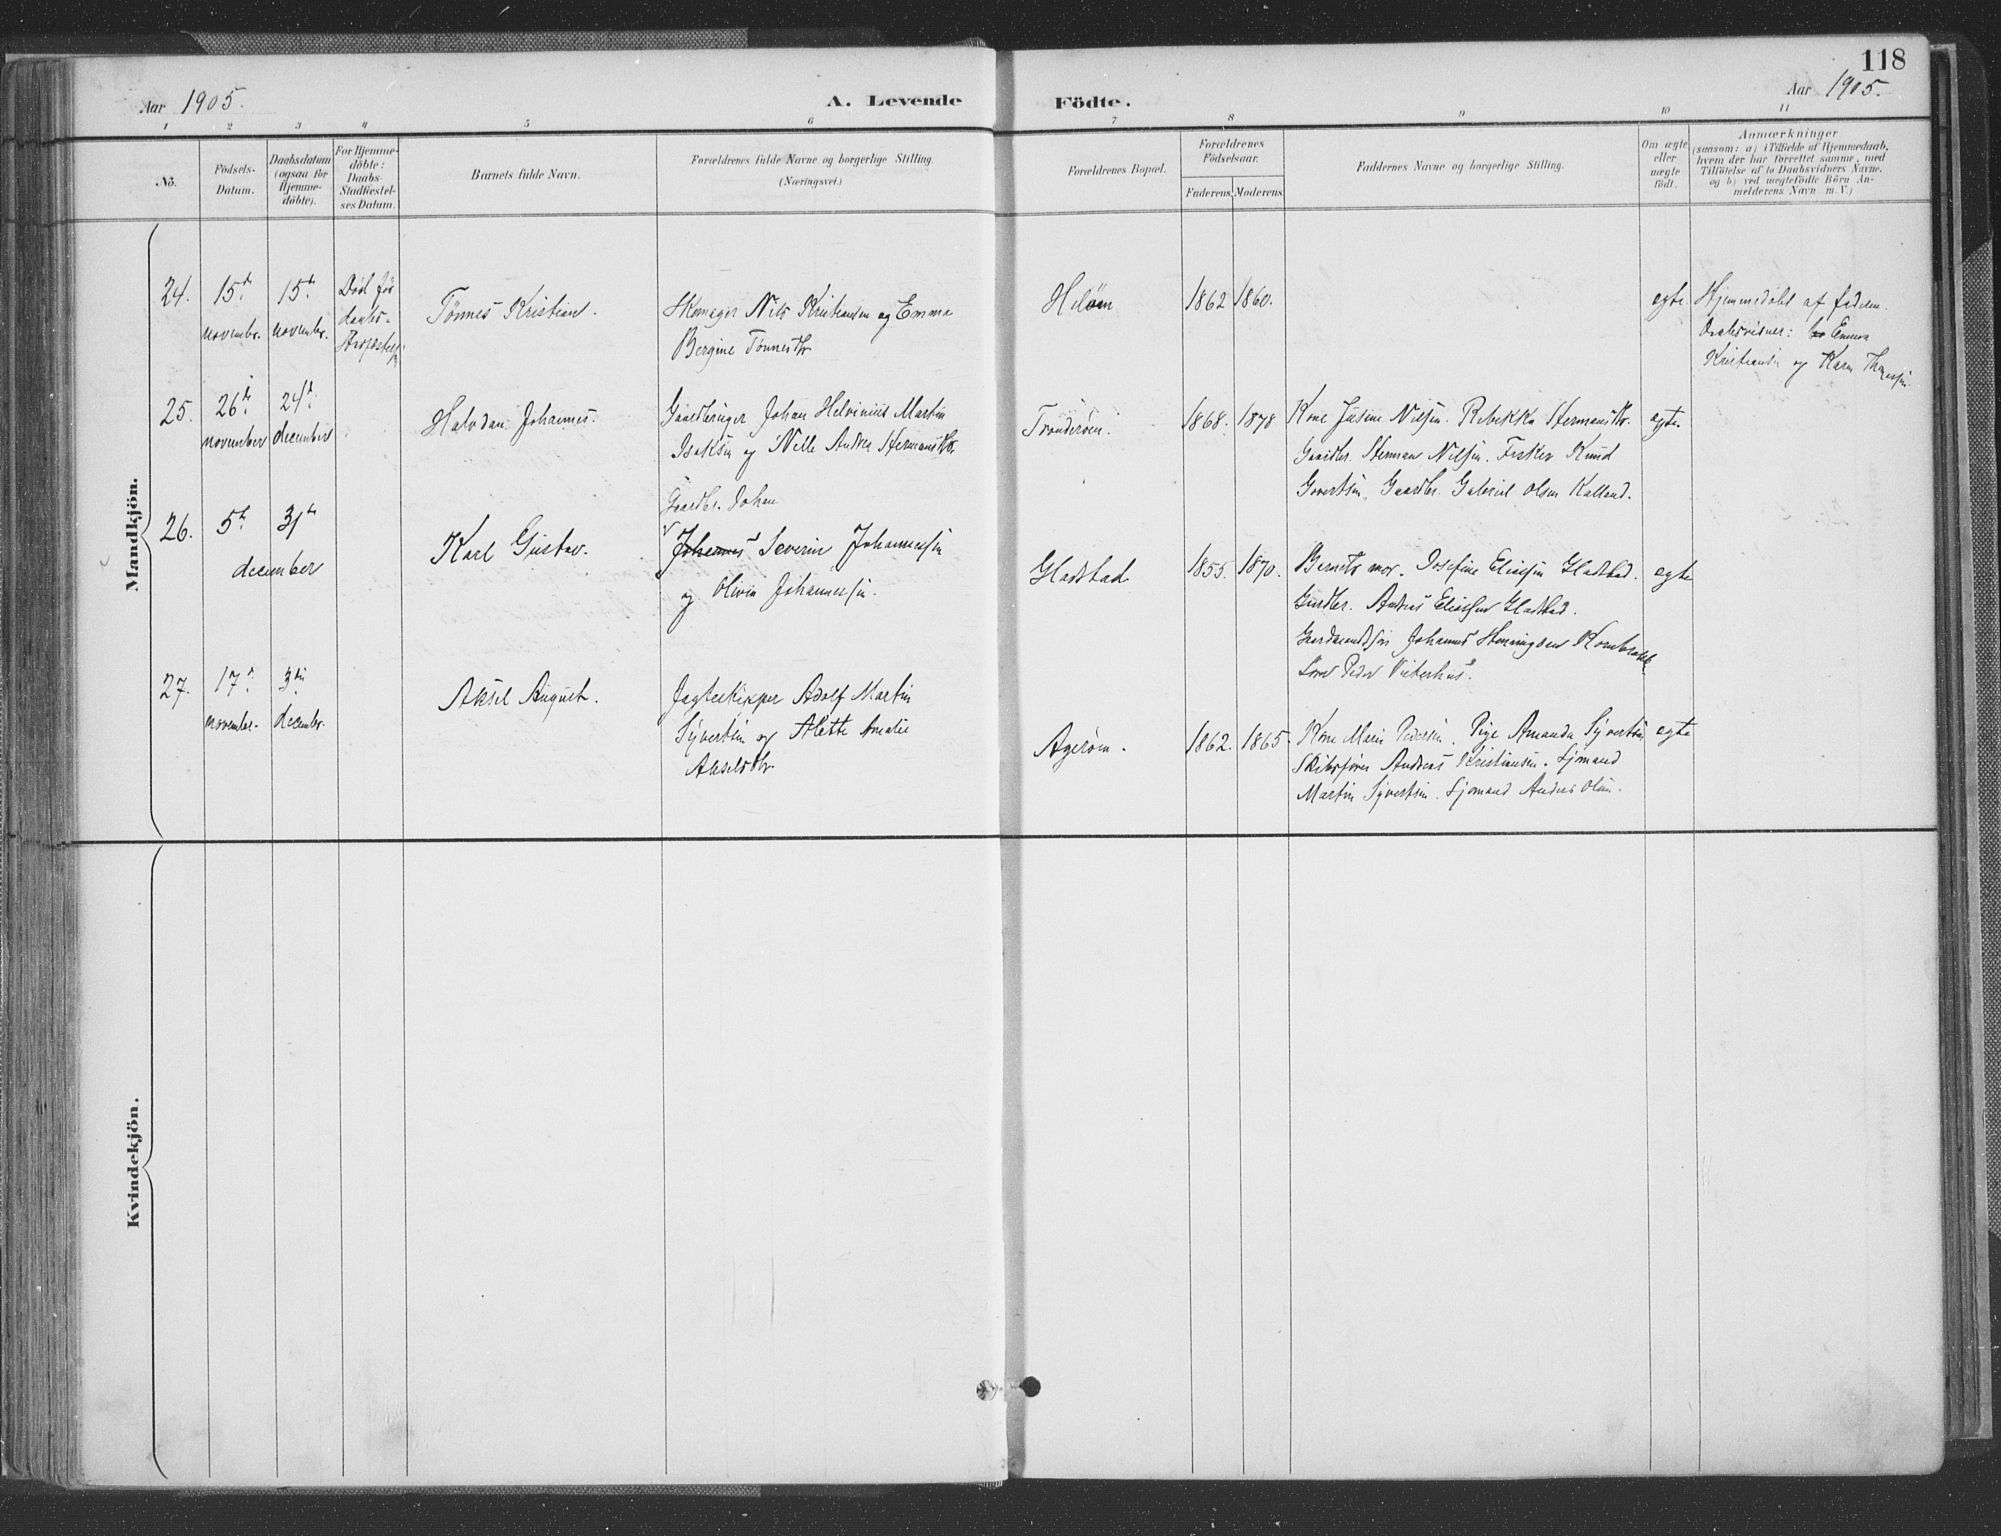 118
Aar 1905.
A. Levende
Födte.
Aar 1905.
1 2 3 4 5 6 7 8 9 10 11
No.
Födsels-
Datum.
Daabsdatum
(ogsaa for
Hjemme-
döbte).
For Hjemme-
döbte:
Daabs-
Stadfæstel-
ses Datum.
Barnets fulde Navn.
Forældrenes fulde Navne og borgerlige Stilling.
(Næringsvei.)
Forældrenes Bopæl.
Forældrenes
Födselsaar.
Faderens. Moderens.
Faddernes Navne og borgerlige Stilling.
Om ægte
eller
uægte
födt.
Anmærkninger
(saasom: a) i Tilfælde af Hjemmedaab,
hvem der har forrettet samme, med
Tilföielse af to Daabsvidners Navne.
og b) ved uægtefödte Börn An-
melderens Navn m. V.)
Mandkjön.
24.
15de
novembr.
15de
novembr.
Död før
daabs-
Tønnes Kristian.
Skomager Nils Kristiansen og Emma
Bergine Tønnesdtr.
Heløen
1862 1860.
egte
Hjemmedøbt af faderen.
Emma
Kristiansen og Karen
25.
26de
november
24de
december
Halvdan Johannes.
Gaardbruger Johan Helvinius Martin
Isaksen og Nille Andrea Hermansdtr.
Tronderøen.
1868. 1878
Kone Justine Nilsen. Rebekka Hermansdtr.
Gaardbr. Herman Nilsen. Fisker Knud
Govertsen, Gaardbr. Gabriel Olsen Kalland.
egte.
26.
5te
31te
december
Karl Gustav.
Gaardbr. Johan
Johannes Severin Johannessen
og Olivia Johannessen.
Gladstad
1855. 1870.
Barnets mor. Josefine Eliassen Gladstad.
Gardbr. Andreas Eliassen Gladstad.
Johannes Henningsen
Peder
egte
27.
17de
november.
3die
decembr.
Aksel August.
Jagteskipper Adolf Martin
Syvertsen og Alette Amalie
Akselsdtr.
Agerøen.
1862. 1865.
Kone Marie Pedersen. Pige Amanda Syvertsen
Skibsfører Andreas Kristiansen. Sjømand
Martin Syvertsen. Sjømand Anders Olsen.
egte
Kvindekjön.